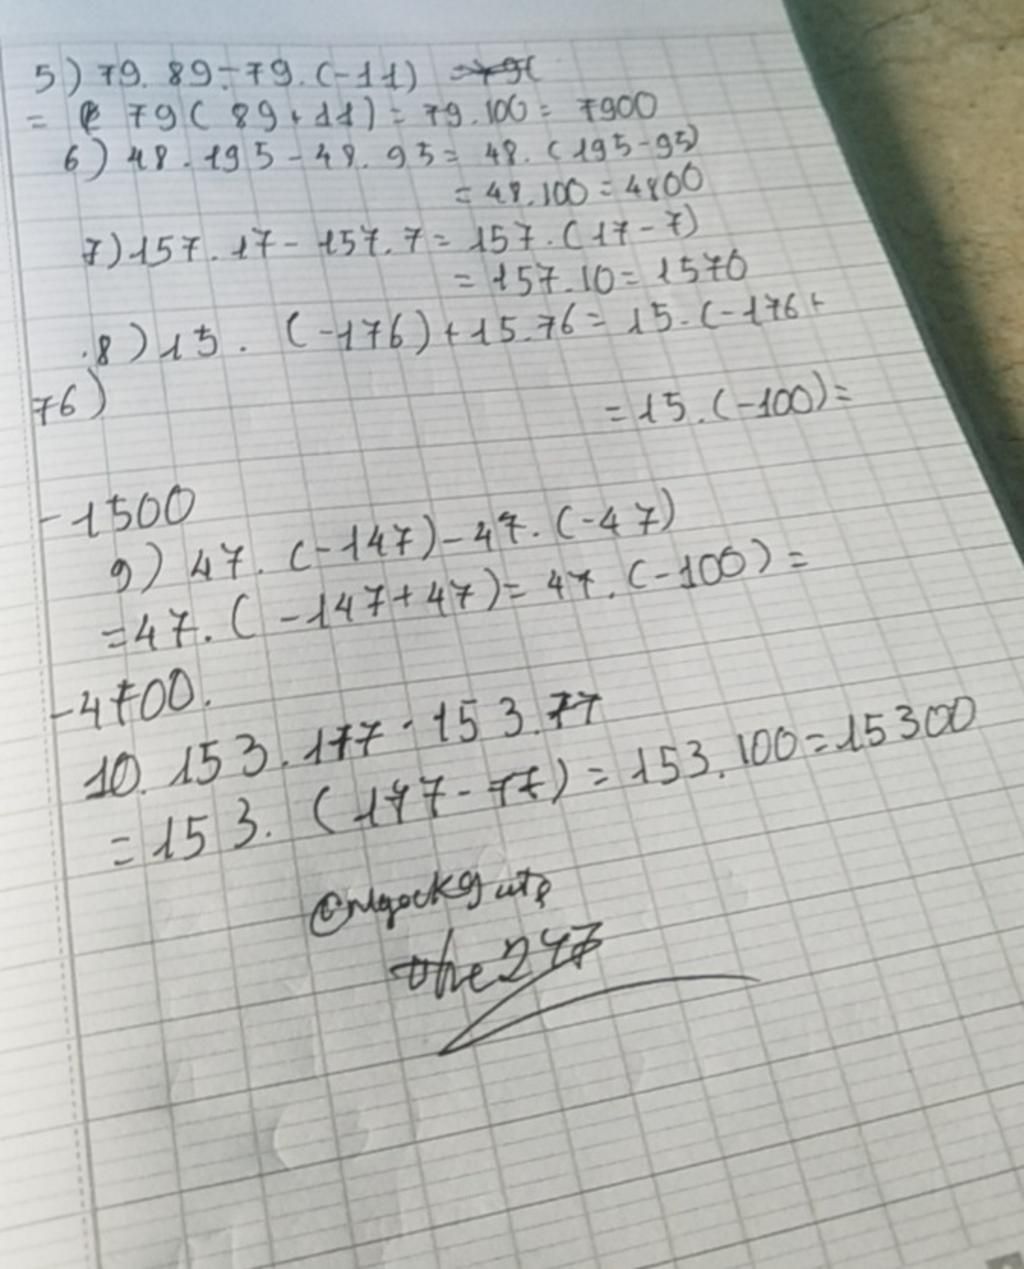 5) 79. 89 - 79. (-11)
= 79 ( 89 + 11) = 79.100 = 7900
6) 48. 195 - 48. 95 = 48. (195-95)
= 48.100 = 4800
7) 157. 17 - 157. 7 = 157. (17 - 7)
= 157.10 = 1570
8) 15. (-176) + 15.76 = 15. (-176 +
76)
= 15. (-100) =
-1500
9) 47. (-147) - 47. (-47)
= 47. ( -147 + 47) = 47. (-100) =
-4700.
10. 153. 177 - 153.77
= 153. (177 - 77) = 153. 100 = 15300
the247